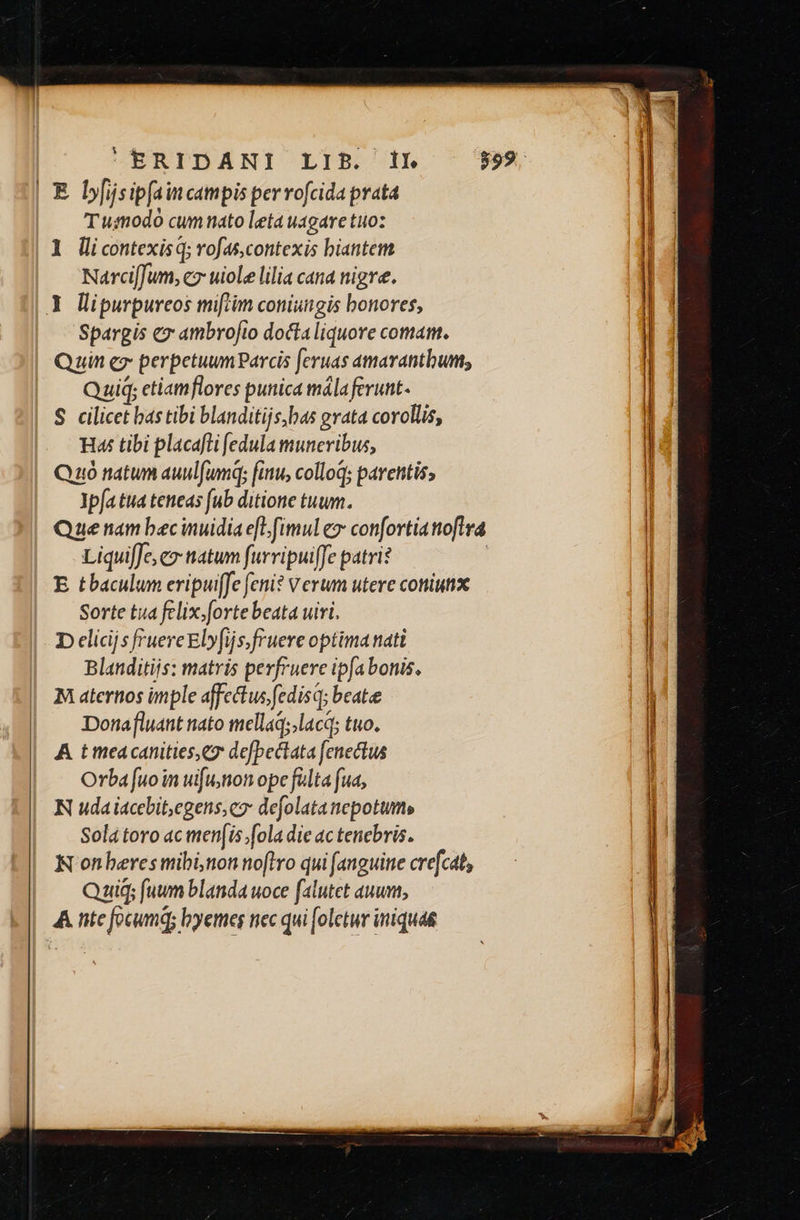 ERIDANI LIB. II. 599
E lyſijs ipſa in campis per roſcida prata
Tu modò cum nato leta uagare tuo:
I lli contexisq; roſas, contexis hiantem
Narciſſum, & uiole lilia cana nigræ.
I lli purpureos miſtim coniungis honores,
Spargis & ambroſio docta liquore comam.
Quin & perpetuum Parcis ſeruas amaranthum,
Quiq; etiam flores punica mála ferunt.
S cilicet has tibi blanditijs, has grata corollis,
Has tibi placaſti ſedula muneribus,
Quò natum auulſumq; ſinu, colloq; parentis,
Ipſa tua teneas ſub ditione tuum.
Quæ nam hæc inuidia eſt, ſimul & conſortia noſtra
Liquiſſe, & natum ſurripuiſſe patri?
E t baculum eripuiſſe ſeni? Verum utere coniunx
Sorte tua felix, ſorte beata uiri.
D elicijs fruere Elyſijs, fruere optima nati
Blanditijs: matris perfruere ipſa bonis.
M aternos imple affectus, ſedisq; beatæ
Dona fluant nato mellaq;, lacq; tuo.
A t mea canities, & deſpectata ſenectus
Orba ſuo in uiſu, non ope fulta ſua,
N uda iacebit, egens, & deſolata nepotum,
Sola toro ac menſis, ſola die ac tenebris.
N on hæres mihi, non noſtro qui ſanguine creſcat,
Quiq; ſuum blanda uoce ſalutet auum,
A nte focumq; hyemes nec qui ſoletur iniquas